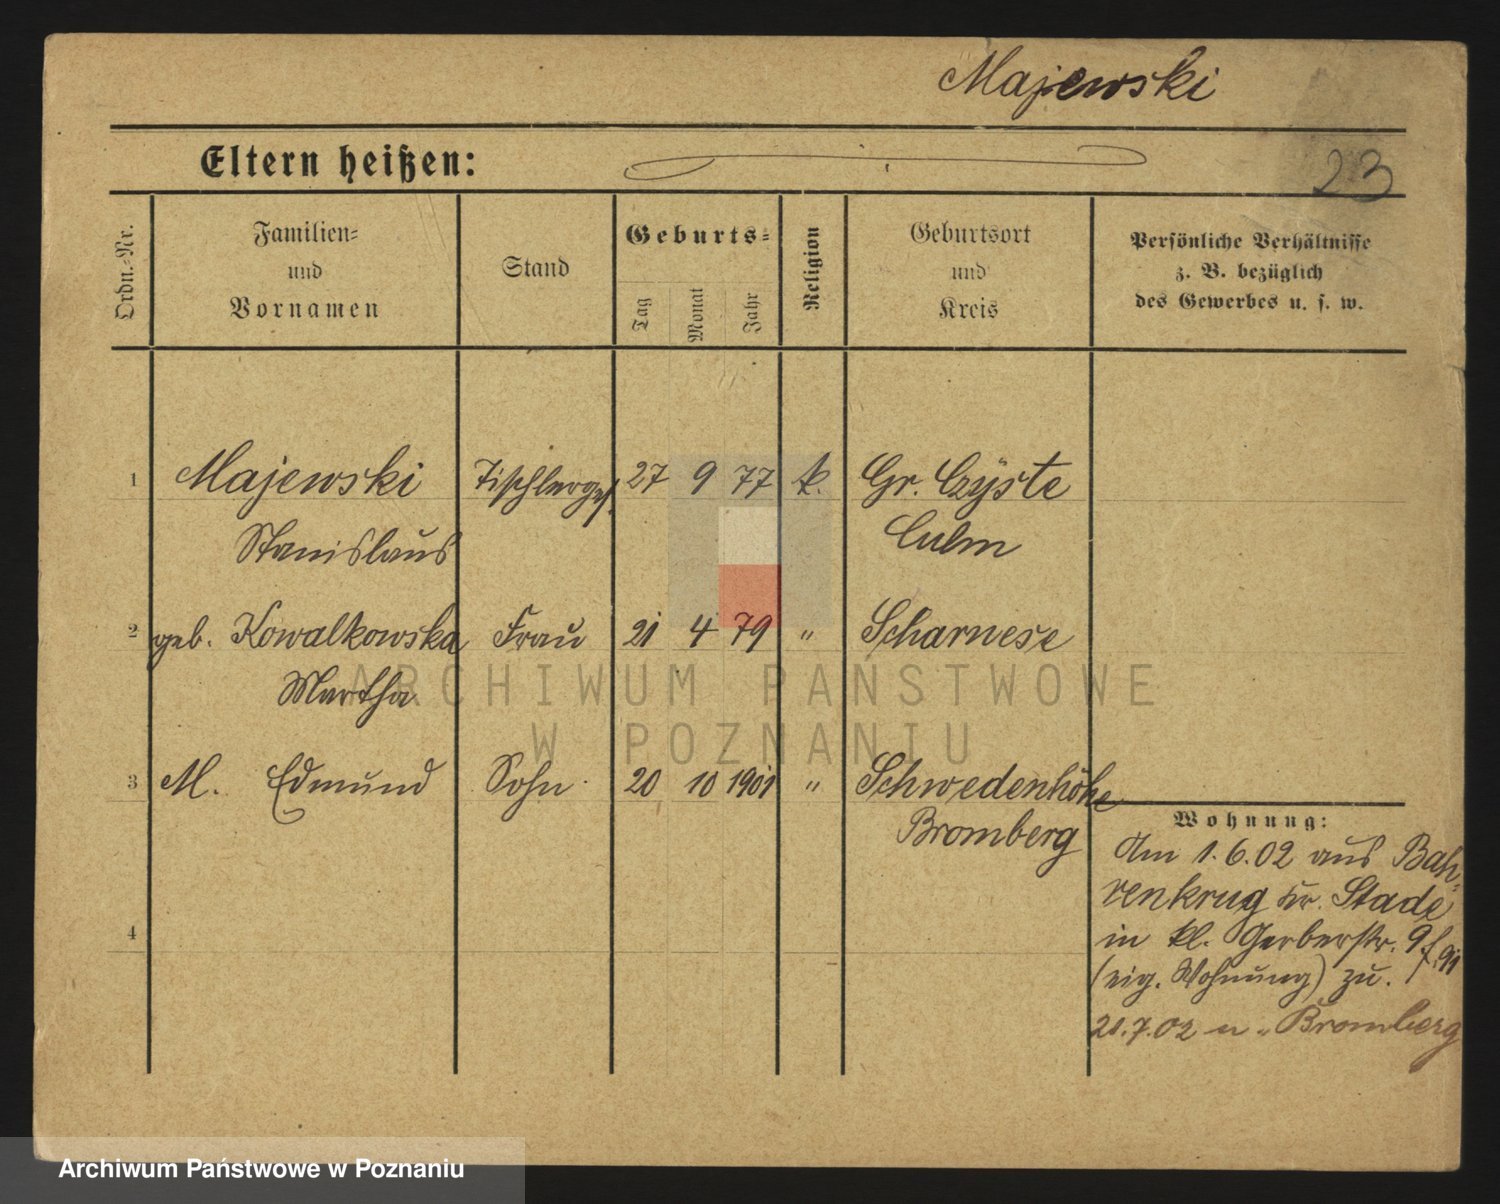 Majewski
Eltern heißen:
23
Ordn.-Nr.
Familien-
und
Vornamen
Stand
Geburts-
Tag
Monat
Jahr
Religion
Geburtsort
und
Kreis
Persönliche Verhältnisse
z. B. bezüglich
des Gewerbes u. s. w.
1 Majewski Tischlerges. 27 9 77 k. Gr. Czÿste
Stanislaus Culm
2 geb. Kowalkowska Frau 21 4 79 " Scharnese
Martha
3 M. Edmund Sohn 20 10 1901 " Schwedenhöhe
Bromberg
4
Wohnung:
Am 1.6.02 aus Bah-
renkrug Kr. Stade
in kl. Gerberstr. 9
(eig. Wohnung) zu.
21.7.02 n. Bromberg
ARCHIWUM PAŃSTWOWE
W POZNANIU
Archiwum Państwowe w Poznaniu